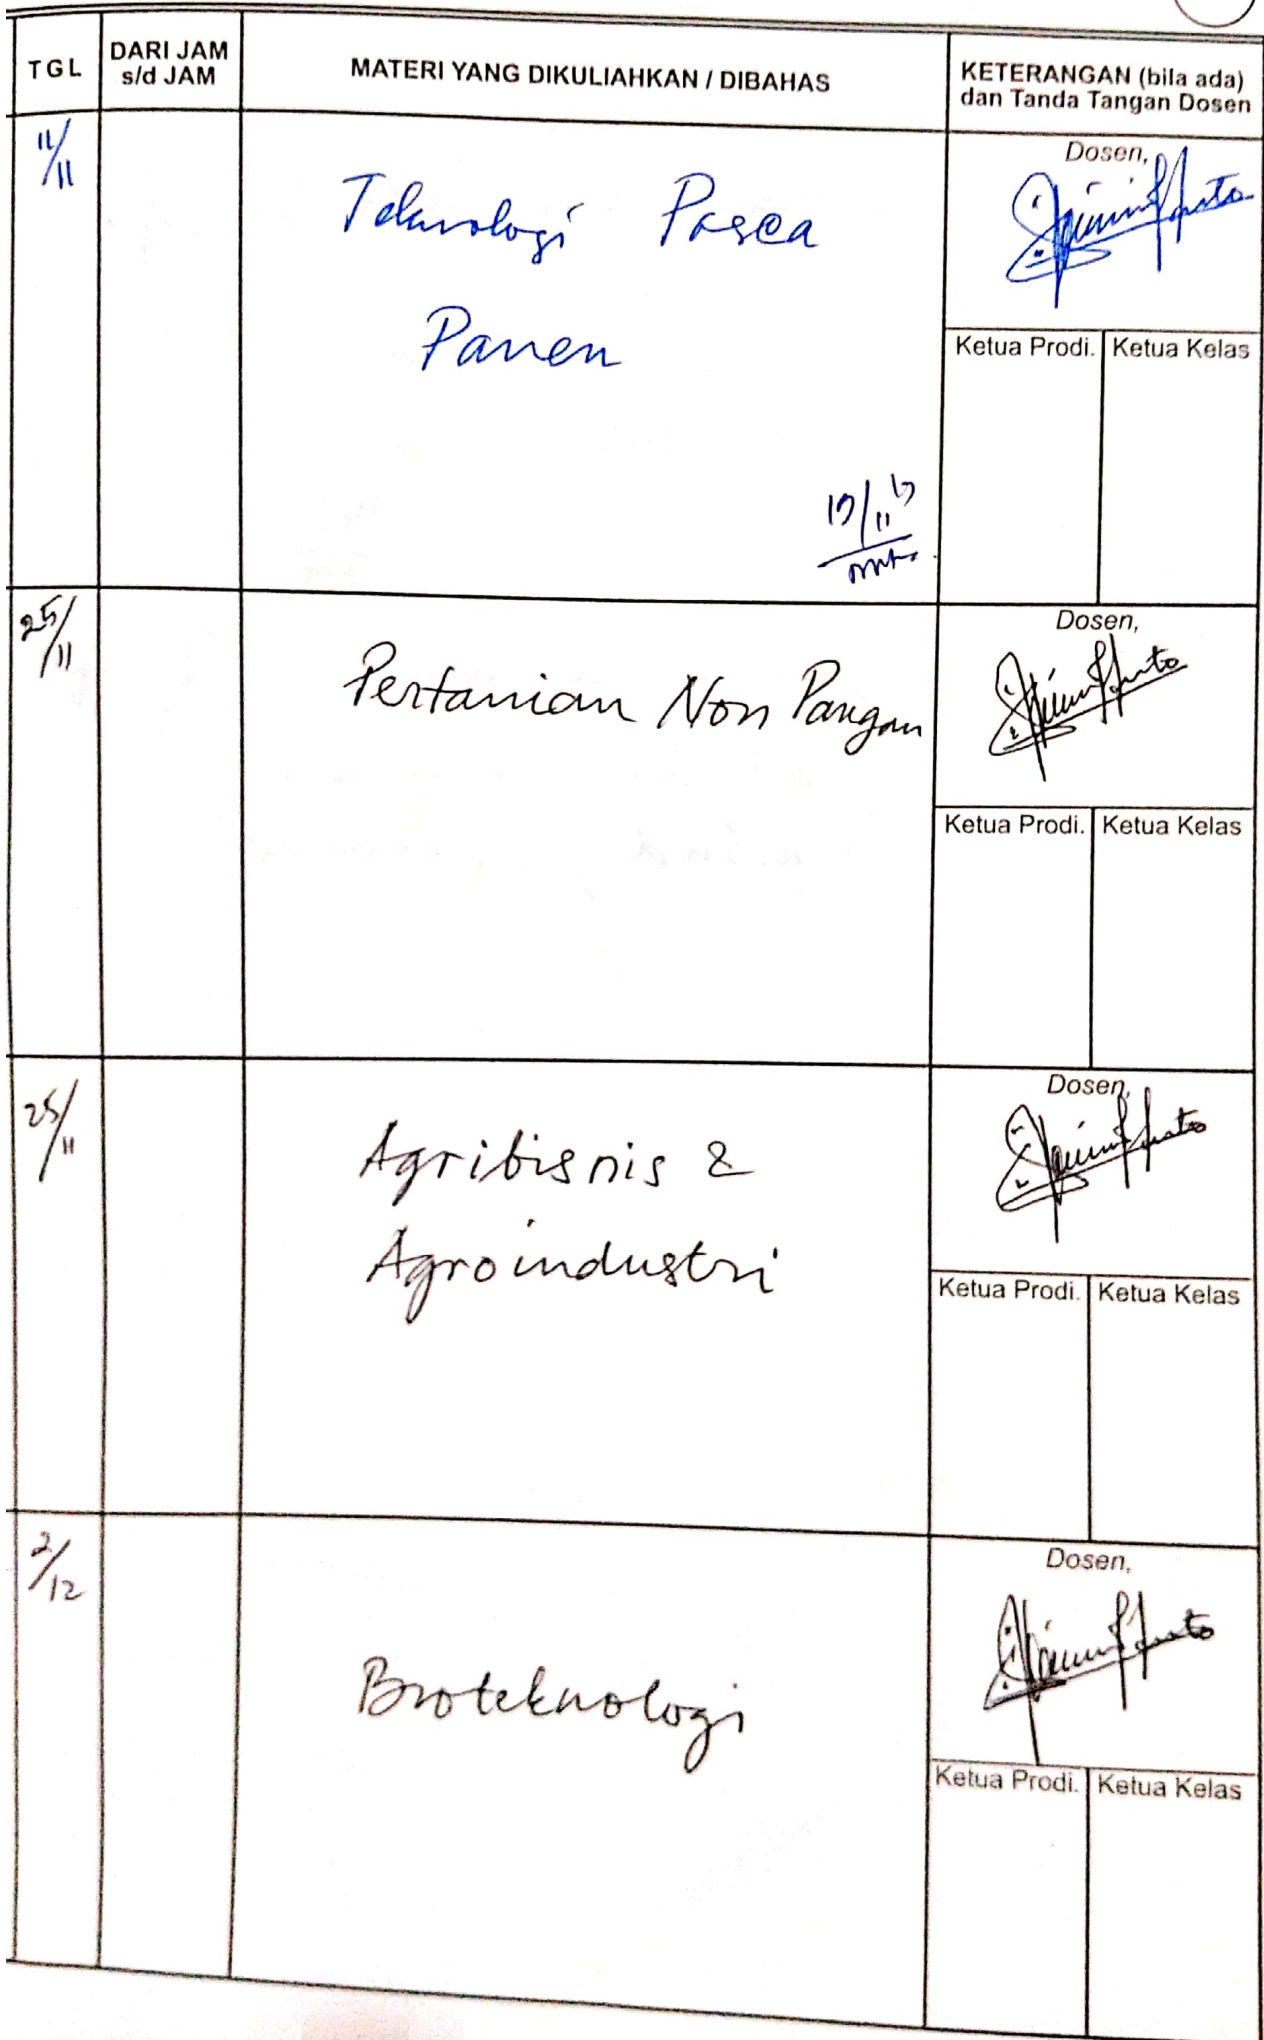 TGL
DARI JAM
s/d JAM
MATERI YANG DIKULIAHKAN / DIBAHAS
KETERANGAN (bila ada)
dan Tanda Tangan Dosen
11/11
Teknologi Pasca
Panen
Dosen,
Ketua Prodi. Ketua Kelas
25/11
Pertanian Non Pangan
Dosen,
Ketua Prodi. Ketua Kelas
25/11
Agribisnis &
Agroindustri
Dosen,
Ketua Prodi. Ketua Kelas
2/12
Bioteknologi
Dosen,
Ketua Prodi. Ketua Kelas